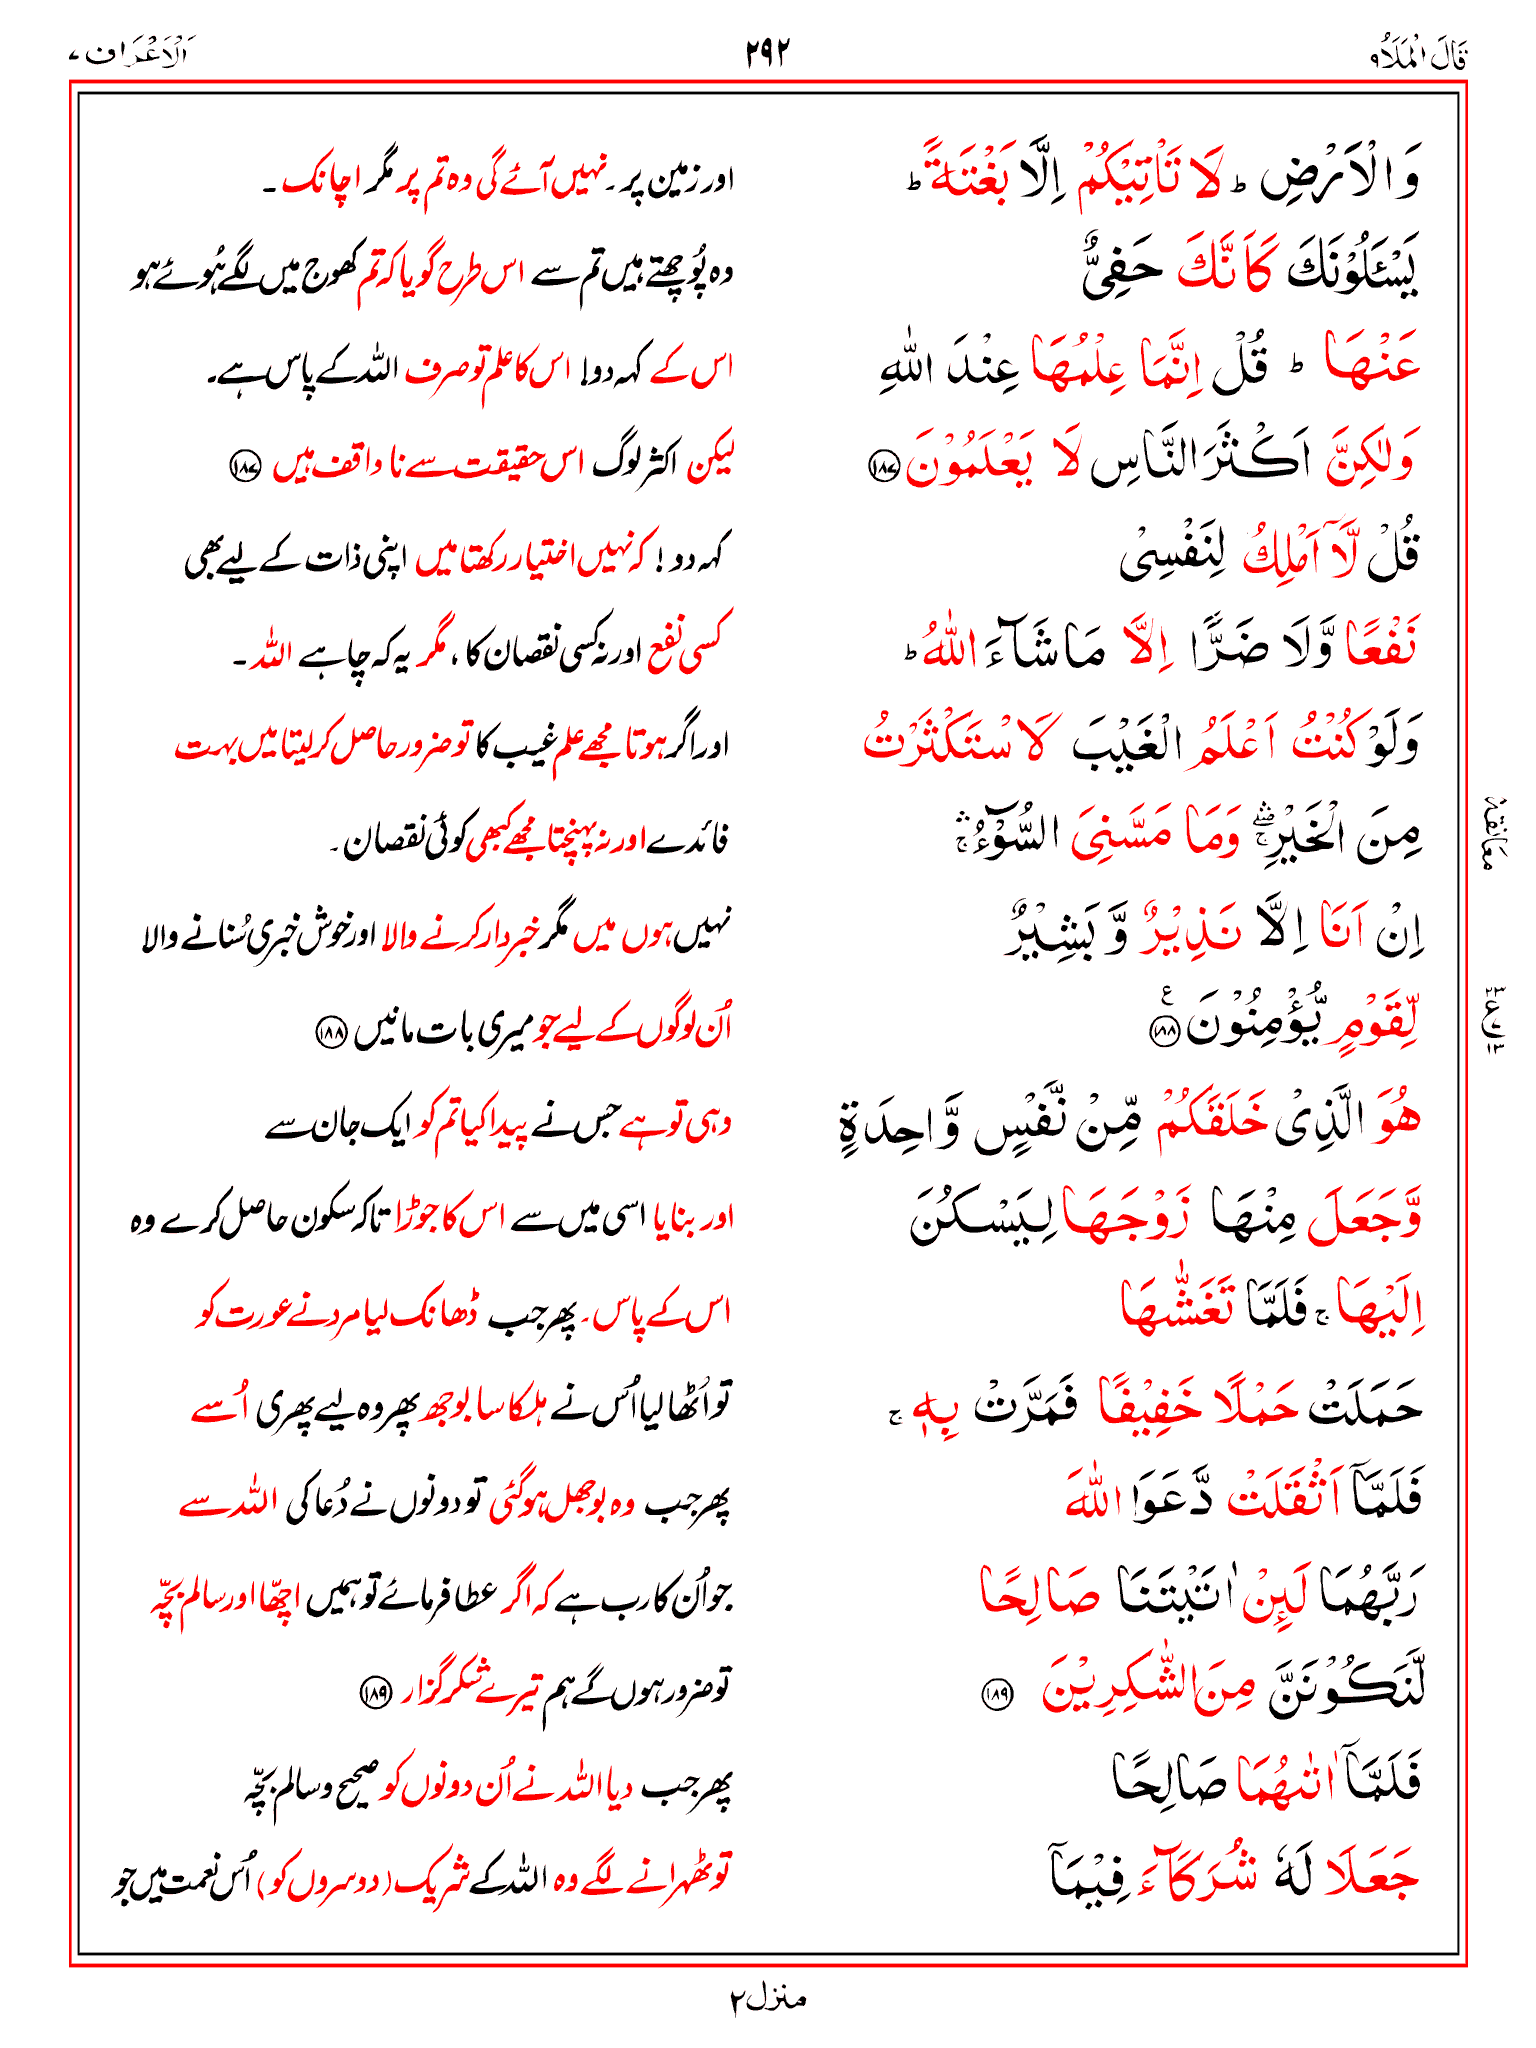 قَالَ الْمَلَاُ ٩
٢٩٢
اَلْاَعْرَاف ٧
وَالْاَرْضِ ؕ لَا تَاْتِيْكُمْ اِلَّا بَغْتَةً ؕ
اور زمین پر۔ نہیں آئے گی وہ تم پر مگر اچانک ۔
يَسْـَٔلُوْنَكَ كَاَنَّكَ حَفِيٌّ
وہ پُوچھتے ہیں تم سے اس طرح گویا کہ تم کھوج میں لگے ہُوئے ہو
عَنْهَا ؕ قُلْ اِنَّمَا عِلْمُهَا عِنْدَ اللّٰهِ
اس کے کہہ دو! اس کا علم تو صرف اللہ کے پاس ہے۔
وَلٰكِنَّ اَكْثَرَ النَّاسِ لَا يَعْلَمُوْنَ ١٨٧
لیکن اکثر لوگ اس حقیقت سے ناواقف ہیں ١٨٧
قُلْ لَّآ اَمْلِكُ لِنَفْسِيْ
کہہ دو ! کہ نہیں اختیار رکھتا میں اپنی ذات کے لیے بھی
نَفْعًا وَّلَا ضَرًّا اِلَّا مَا شَآءَ اللّٰهُ ؕ
کسی نفع اور نہ کسی نقصان کا ، مگر یہ کہ چاہے اللہ ۔
وَلَوْ كُنْتُ اَعْلَمُ الْغَيْبَ لَاسْتَكْثَرْتُ
اور اگر ہوتا مجھے علم غیب کا تو ضرور حاصل کر لیتا میں بہت
مِنَ الْخَيْرِ ۛۖۚ وَمَا مَسَّنِيَ السُّوْٓءُ ۛۚ
فائدے اور نہ پہنچتا مجھے کبھی کوئی نقصان ۔
معانقة
اِنْ اَنَا اِلَّا نَذِيْرٌ وَّ بَشِيْرٌ
نہیں ہوں میں مگر خبردار کرنے والا اور خوش خبری سُنانے والا
لِّقَوْمٍ يُّؤْمِنُوْنَ ١٨٨ ع
اُن لوگوں کے لیے جو میری بات مانیں ١٨٨
هُوَ الَّذِيْ خَلَقَكُمْ مِّنْ نَّفْسٍ وَّاحِدَةٍ
وہی تو ہے جس نے پیدا کیا تم کو ایک جان سے
وَّجَعَلَ مِنْهَا زَوْجَهَا لِيَسْكُنَ
اور بنایا اسی میں سے اس کا جوڑا تاکہ سکون حاصل کرے وہ
اِلَيْهَا ۚ فَلَمَّا تَغَشّٰىهَا
اس کے پاس۔ پھر جب ڈھانک لیا مرد نے عورت کو
حَمَلَتْ حَمْلًا خَفِيْفًا فَمَرَّتْ بِهٖ ۚ
تو اُٹھا لیا اُس نے ہلکا سا بوجھ پھر وہ لیے پھری اُسے
فَلَمَّآ اَثْقَلَتْ دَّعَوَا اللّٰهَ
پھر جب وہ بوجھل ہو گئی تو دونوں نے دُعا کی اللہ سے
رَبَّهُمَا لَىِٕنْ اٰتَيْتَنَا صَالِحًا
جو اُن کا رب ہے کہ اگر عطا فرمائے تو ہمیں اچھّا اور سالم بچّہ
لَّنَكُوْنَنَّ مِنَ الشّٰكِرِيْنَ ١٨٩
تو ضرور ہوں گے ہم تیرے شکر گزار ١٨٩
فَلَمَّآ اٰتٰىهُمَا صَالِحًا
پھر جب دیا اللہ نے اُن دونوں کو صحیح و سالم بچّہ
جَعَلَا لَهٗ شُرَكَآءَ فِيْمَآ
تو ٹھہرانے لگے وہ اللہ کے شریک (دوسروں کو) اُس نعمت میں جو
منزل ٢